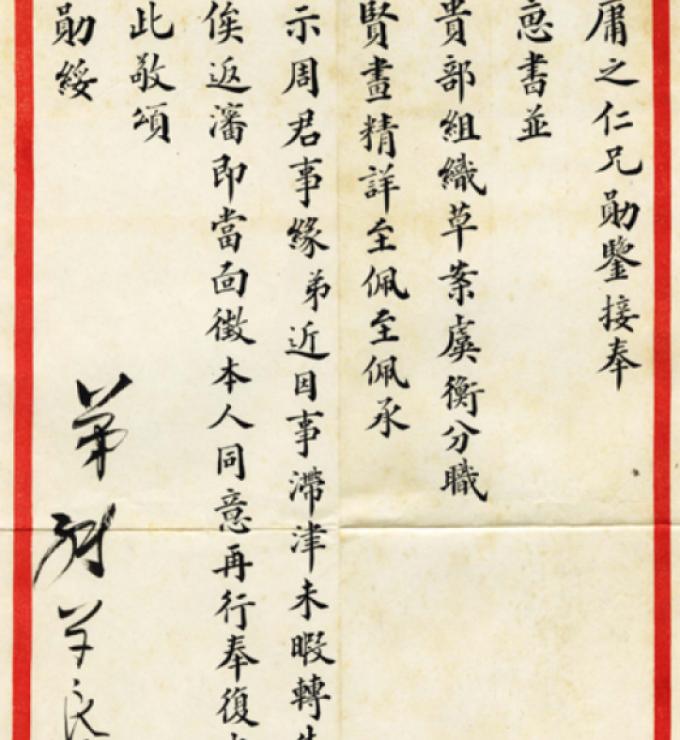 庸之仁兄勛鑒接奉
惠書並
貴部組織草案虞衡分職
賢畫精詳至佩至佩承
示周君事緣弟近因事滯津未暇轉
俟返瀋即當面徵本人同意再行奉復
此敬頌
勛綏
弟張學良